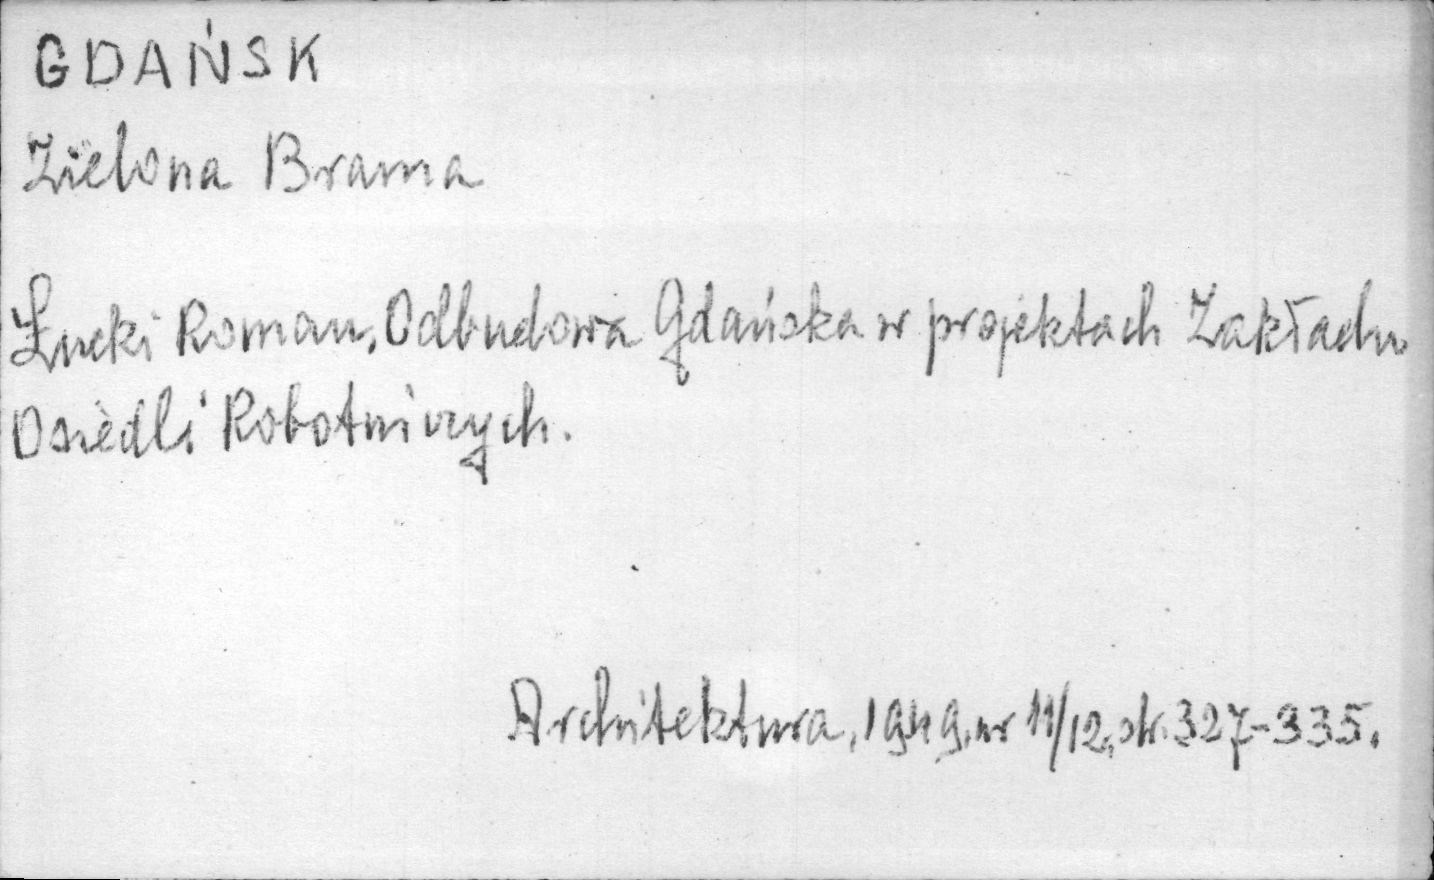 GDAŃSK
Zielona Brama
Łucki Roman, Odbudowa Gdańska w projektach Zakładu
Osiedli Robotniczych.
Architektura, 1949, nr 11/12, str. 327-335.